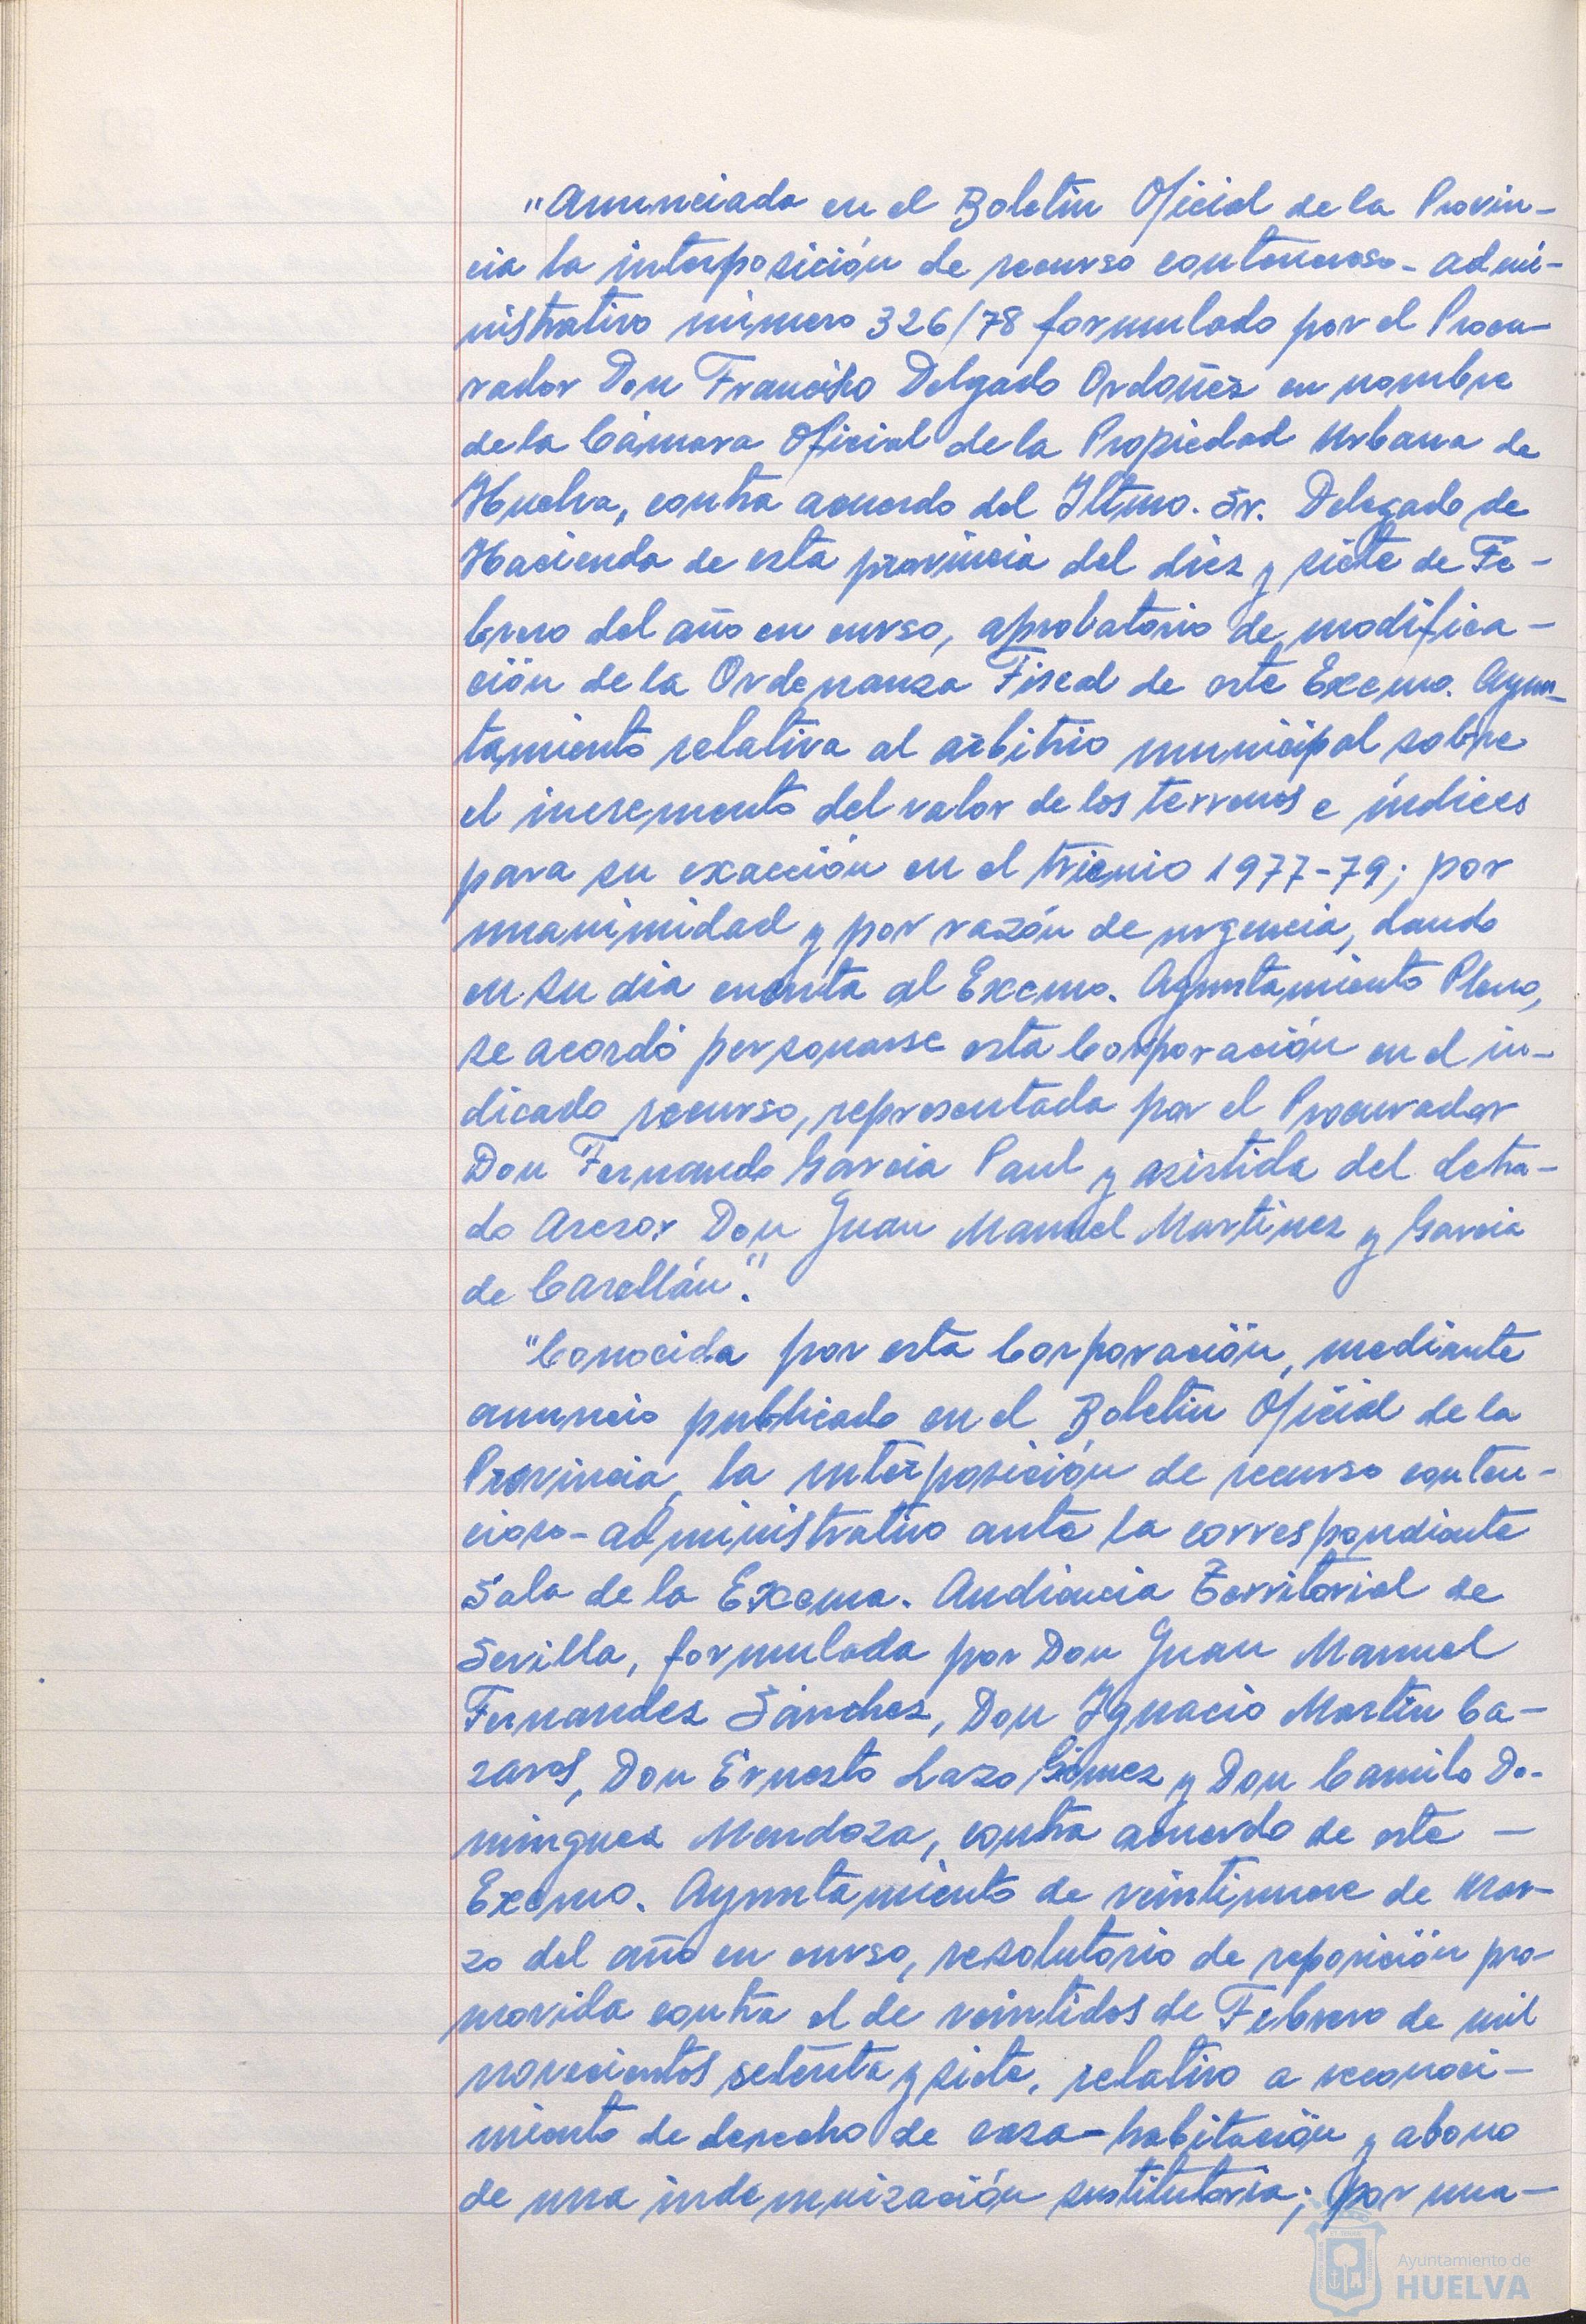 "Anunciada en el Boletín Oficial de la Provin-
cia la interposición de recurso contencioso-admi-
nistrativo número 326/78 formulado por el Procu-
rador Don Francisco Delgado Ordoñez en nombre
de la Cámara Oficial de la Propiedad Urbana de
Huelva, contra acuerdo del Iltmo. Sr. Delegado de
Hacienda de esta provincia del diez y siete de Fe-
brero del año en curso, aprobatorio de modifica-
ción de la Ordenanza Fiscal de este Excmo. Ayun-
tamiento relativa al arbitrio municipal sobre
el incremento del valor de los terrenos e índices
para su exacción en el trienio 1977-79; por
unanimidad y por razón de urgencia, dando
en su día cuenta al Excmo. Ayuntamiento Pleno,
se acordó personarse esta Corporación en el in-
dicado recurso, representada por el Procurador
Don Fernando García Paul y asistida del Letra-
do Asesor Don Juan Manuel Martínez y García
de Casellán."
"Conocida por esta Corporación, mediante
anuncio publicado en el Boletín Oficial de la
Provincia, la interposición de recurso conten-
cioso-administrativo ante la correspondiente
Sala de la Excma. Audiencia Territorial de
Sevilla, formulada por Don Juan Manuel
Fernandez Sánchez, Don Ignacio Martín Ca-
zaros, Don Ernesto Lazo Gómez y Don Camilo Do-
minguez Mendoza, contra acuerdo de este -
Excmo. Ayuntamiento de veintinueve de Mar-
zo del año en curso, resolutorio de reposición pro-
movida contra el de veintidos de Febrero de mil
novecientos setenta y siete, relativo a reconoci-
miento de derecho de casa-habitación y abono
de una indemnización sustitutoria; por una-
Ayuntamiento de
HUELVA